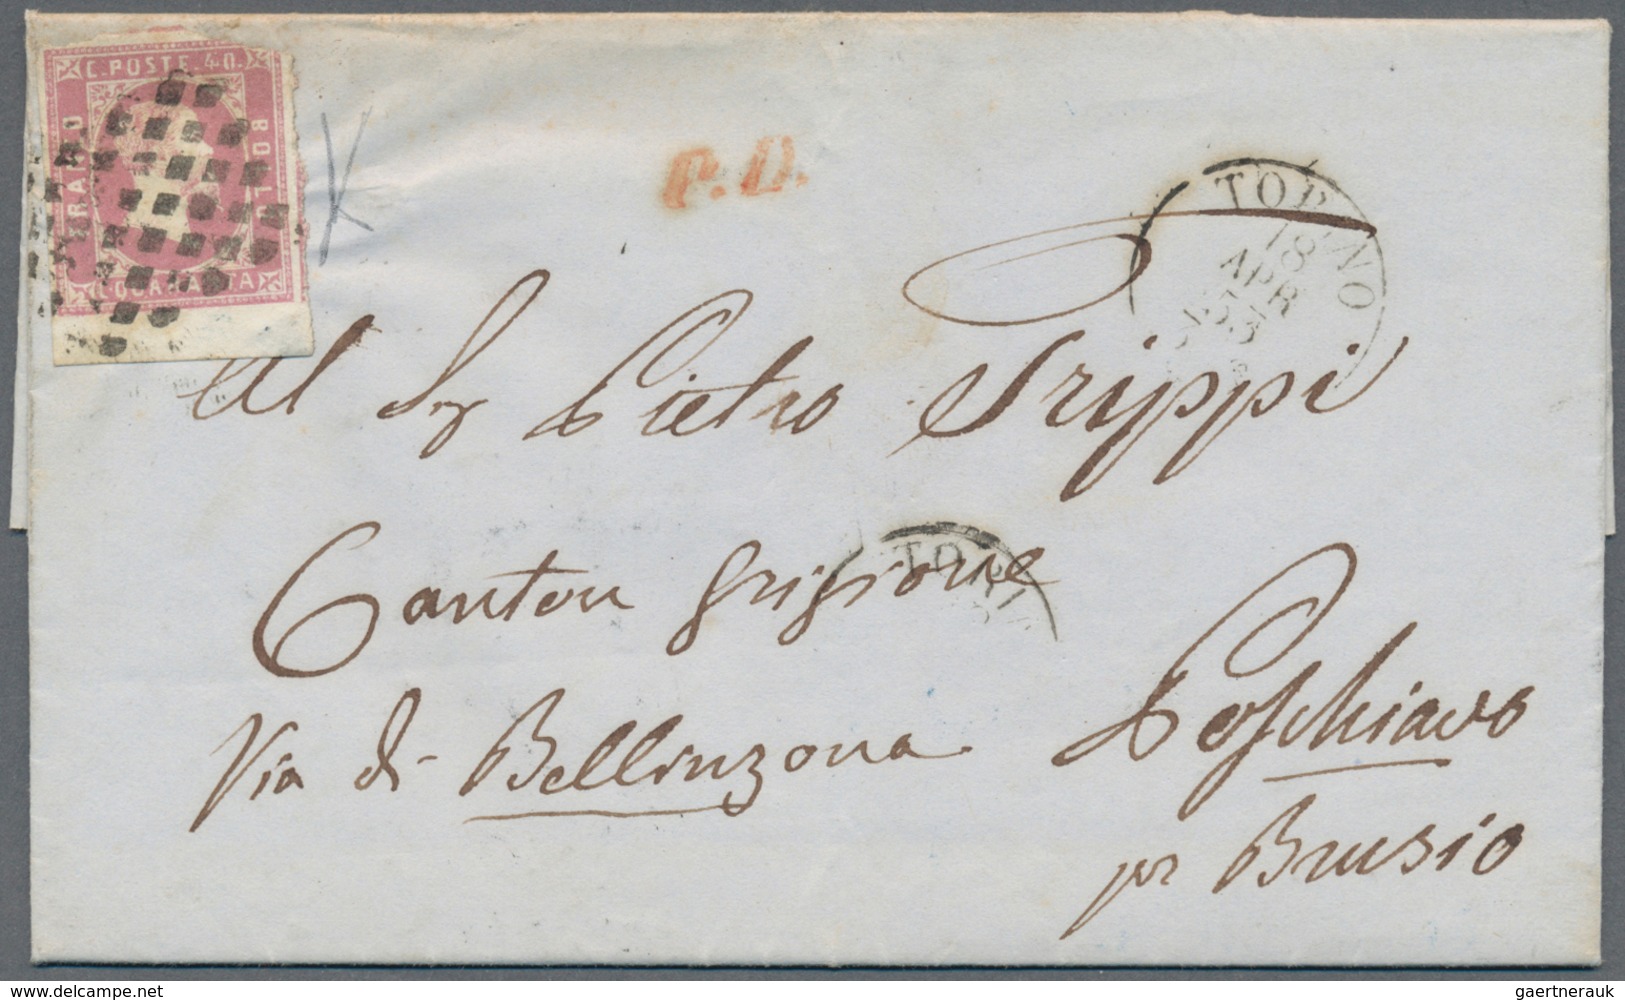 C. POSTE. 40.
FRANCO
BOLLO
C. QUARANTA
P.D.
TORINO
18
APR
53
Al Sig Pietro Trippi
TORI
Canton Grigione
Via di Bellinzona
Poschiavo
pr Brusio
gaertnerauk